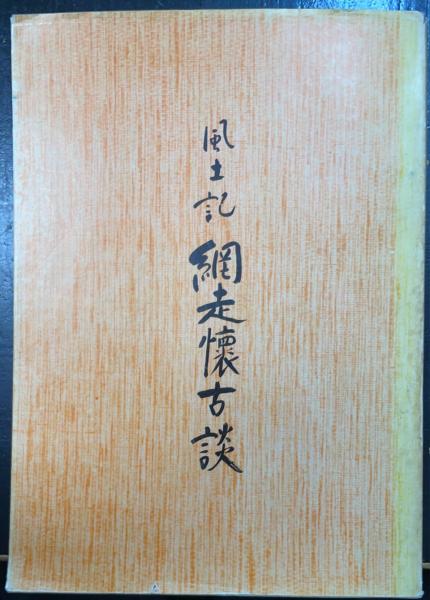 風土記
網走懐古談